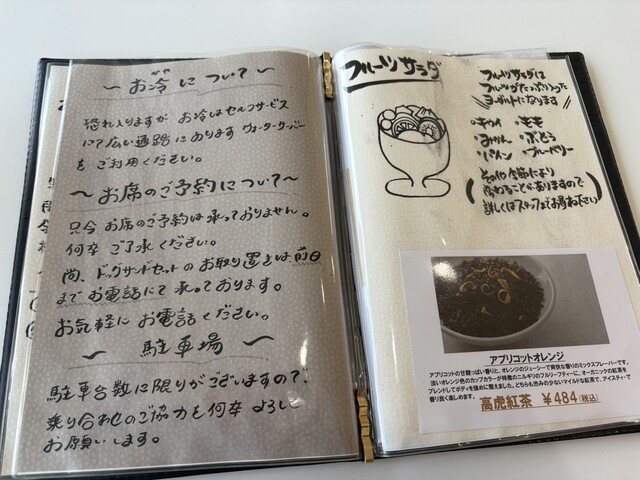 〜 お冷について 〜
がや
恐れ入りますが お冷はセルフサービス
にて広い通路にあります ウォーターサーバー
をご利用ください。
〜お席のご予約について〜
只今 お席のご予約は承っておりません。
何卒 ご了承ください。
尚、ドッグサンドセットの お取り置きは 前日
までお電話にて 承っております。
お気軽に お電話ください。
〜 駐車場 〜
駐車台数に限りがございますので、
乗り合わせのご協力を何卒 よろしく
お願いします。
フルーツサラダ
フルーツサラダは
フルーツがたっぷり入った
ヨーグルトになります
・キウイ ・もも
・みかん ・ぶどう
・パイン ・ブルーベリー
その他 季節により
変わることがありますので
詳しくはスタッフまでお尋ね下さい
アプリコットオレンジ
アプリコットの甘酸っぱい香りと、オレンジのジューシーで爽快な香りのミックスフレーバーです。
淡いオレンジ色のカップカラーが特徴のニルギリのフルリーフティーに、オーガニックの紅茶を
ブレンドしてボディを強めに整えました。どちらも渋みの少ないマイルドな紅茶で、アイスティーで
香り良く楽しめます。
高虎紅茶 ¥484(税込)